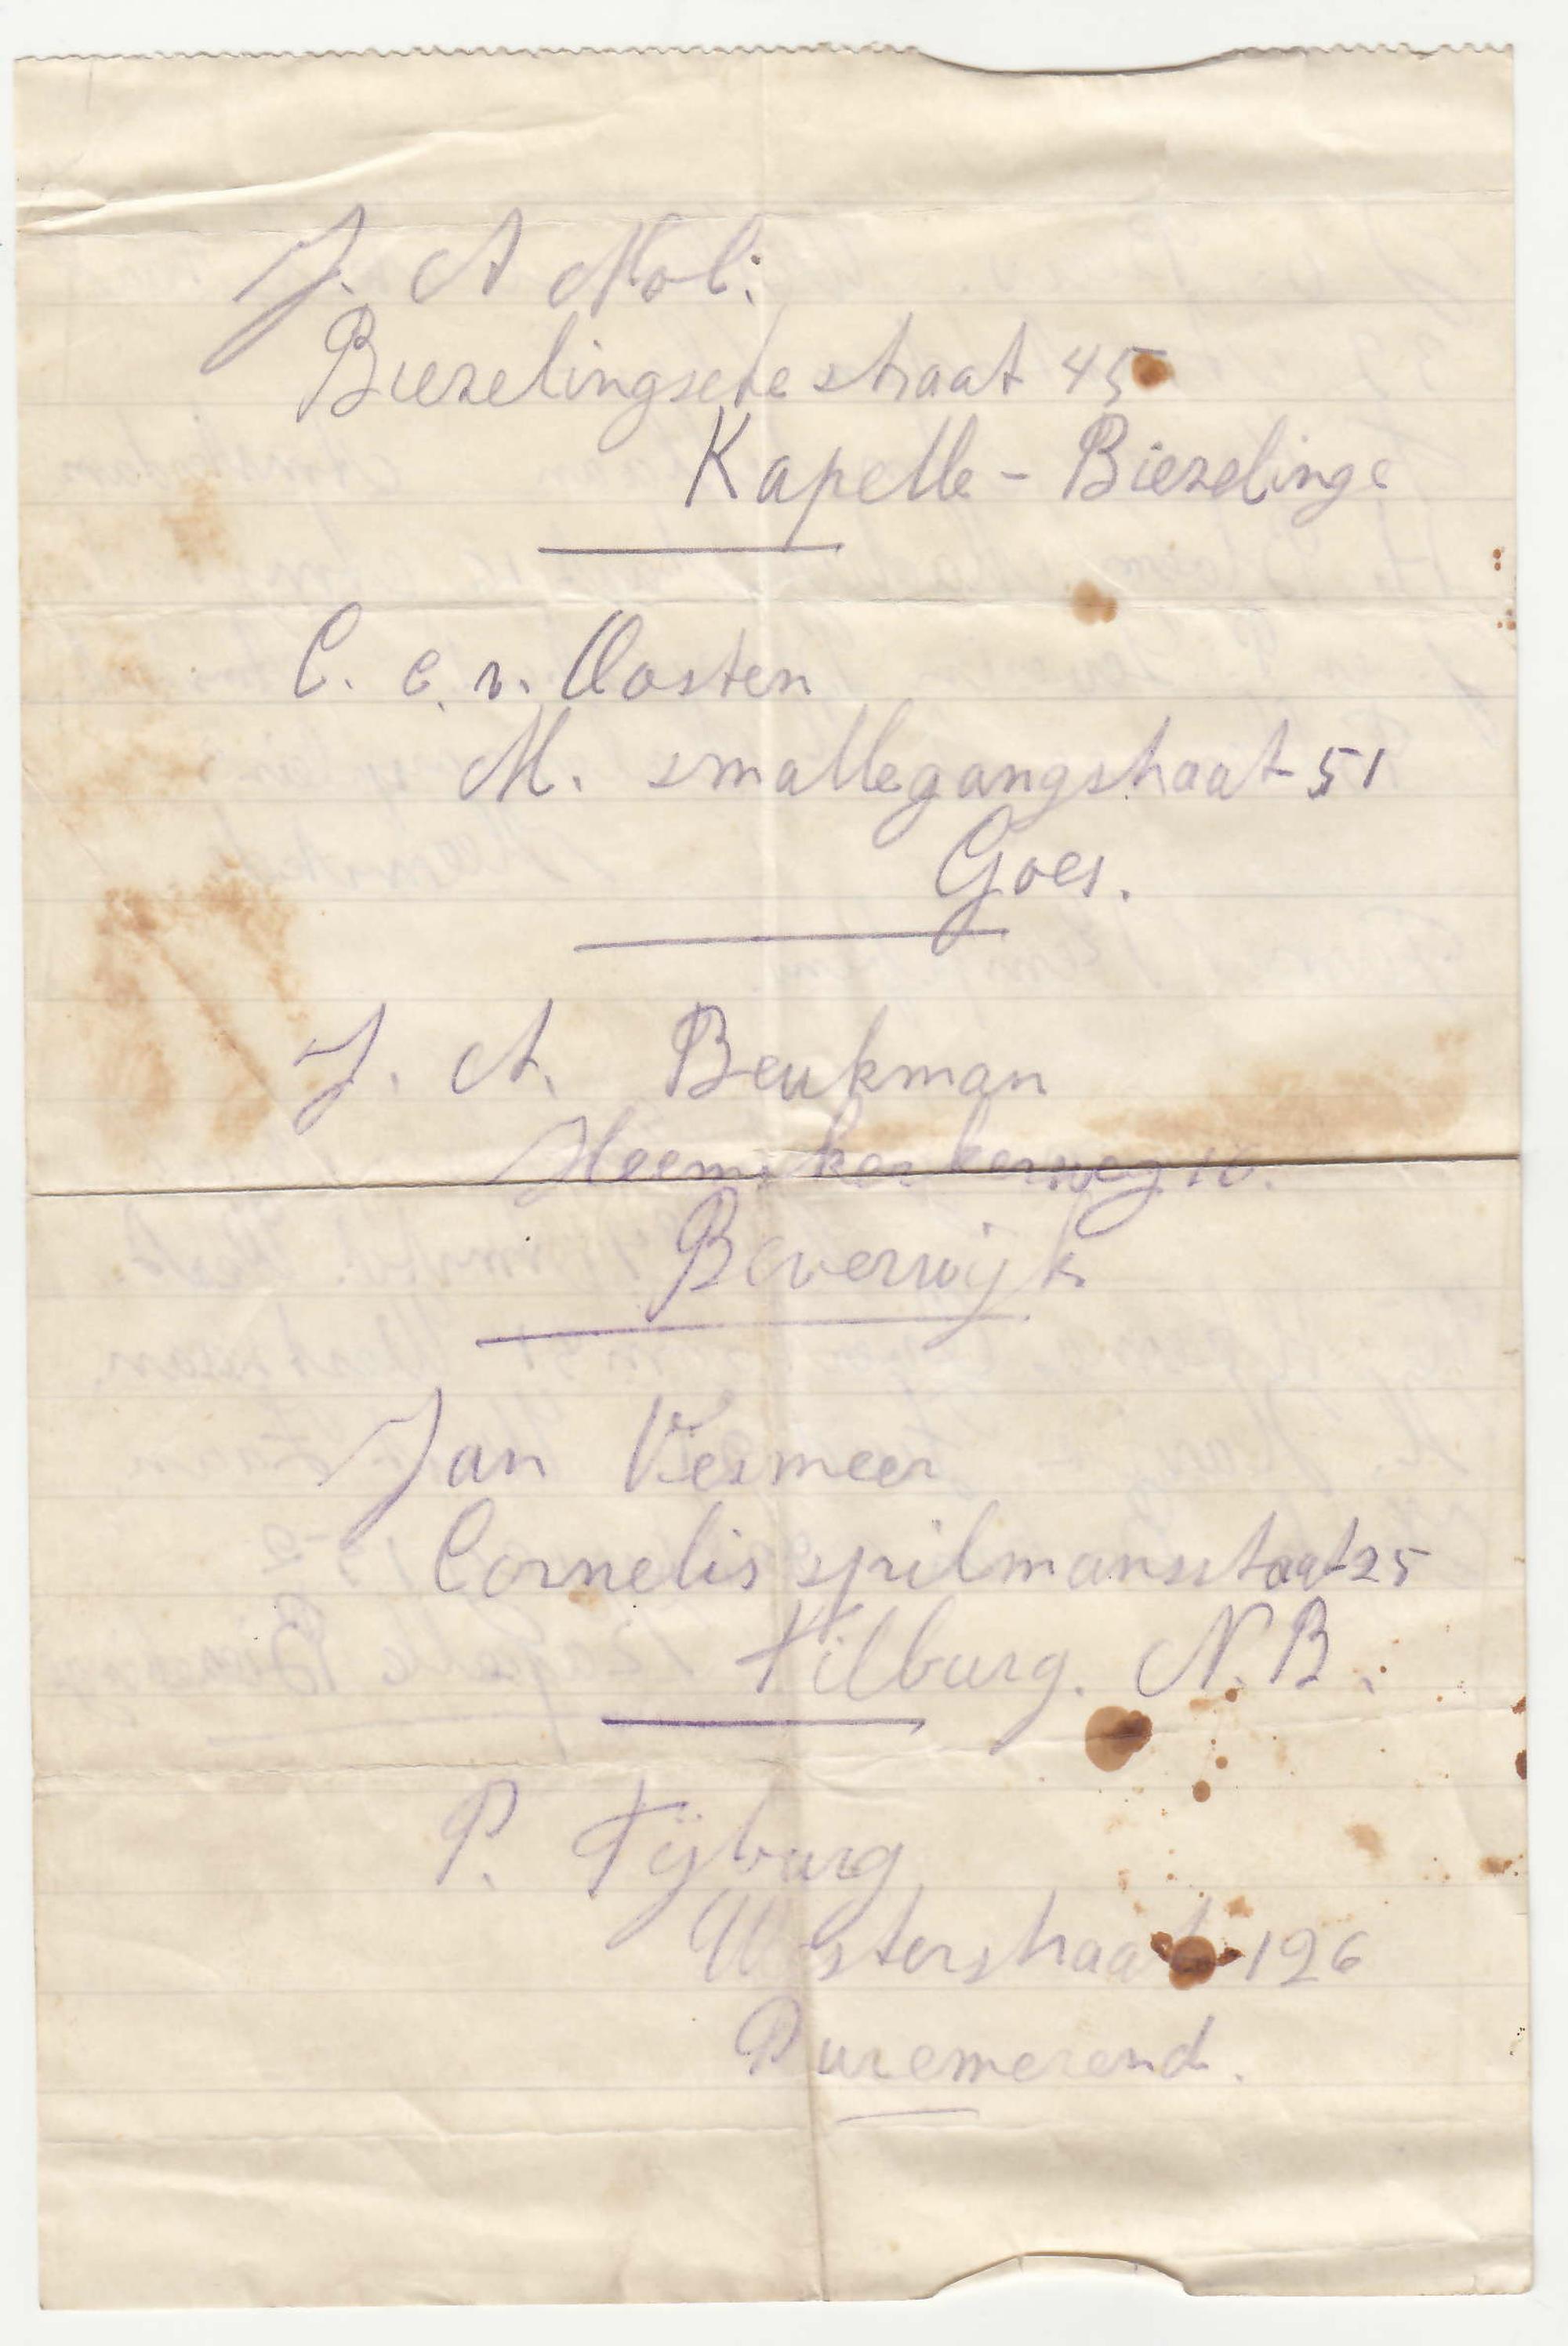 J. A Mol.
Biezelingsche straat 45
Kapelle - Biezelinge
C. C. v. Oosten
M. smallegangstraat 51
Goes.
J. A. Beukman
Heemskerkerweg 10.
Beverwijk
Jan Vermeer
Cornelis spilmansstaat 25
Tilburg. N.B.
P. Tijburg
Westerstraat 126
Puremerend.